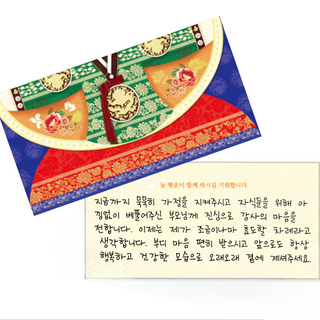 늘 행운이 함께 하시길 기원합니다.
지금까지 묵묵히 가정을 지켜주시고 자식들을 위해 아
낌없이 베풀어주신 부모님께 진심으로 감사의 마음을
전합니다. 이제는 제가 조금이나마 효도할 차례라고
생각합니다. 부디 마음 편히 받으시고 앞으로도 항상
행복하고 건강한 모습으로 오래오래 곁에 계셔주세요.